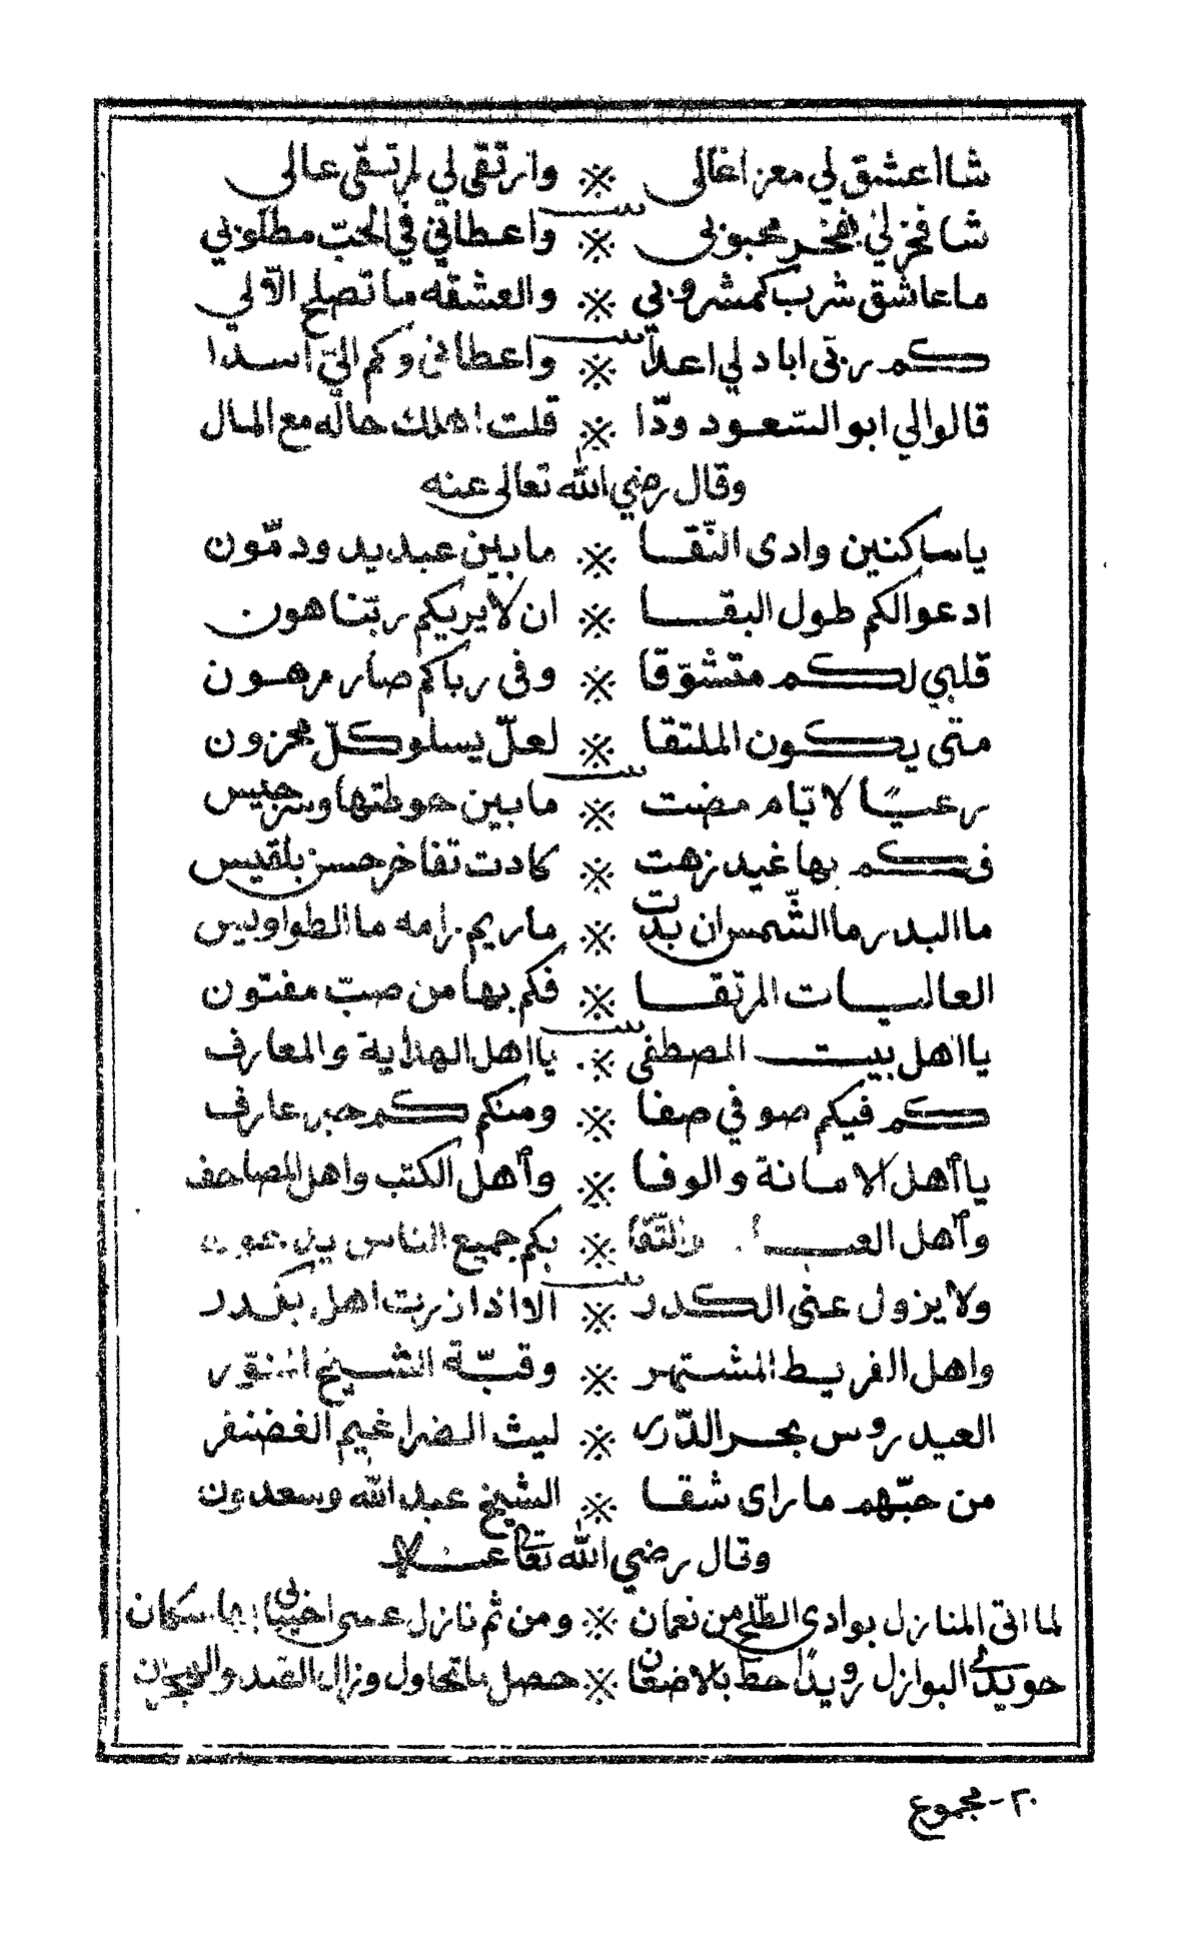 شااعشق لي معز اغالى ※ وارتقى لي لمرتقى عالى
شا فخر لي بفخر محبوبى ※ واعطاني في الحبّ مطلوبي
ما عاشق شرب كمشروبي ※ والعشقه ما تصلح الّا لي
كم ربّى اباد لي اعدا ※ واعطانى وكم اليّ اسدا
قالوا لي ابو السّعود ودّا ※ قلت اهلك حاله مع المال
وقال رضي الله تعالى عنه
ياساكنين وادى النّقا ※ مابين عبديد ودمّون
ادعوا لكم طول البقا ※ ان لا يريكم ربّنا هون
قلبي لكم متشوّقا ※ وفى رباكم صار مرهون
متى يكون الملتقا ※ لعلّ يسلو كلّ محزون
رعيًا لايّام مضت ※ مابين حوطتها وسرجيس
فى كم بها غيد زهت ※ كادت تفاخر حسن بلقيس
ما البدر ما الشّمس ان بدت ※ ما ريم رامه ما الطواويس
العاليات المرتقا ※ فكم بها من صبّ مفتون
يا اهل بيت المصطفى ※ يا اهل الهداية والمعارف
كم فيكم صوفي صفا ※ ومنكم كم حبر عارف
يا أهل الامانة والوفا ※ وأهل الكتب واهل المصاحف
وأهل والتّقا ※ بكم جميع الناس
ولا يزول عنى الكدر ※ الا اذا زرت اهل بكدر
واهل الفريط المشتهر ※ وقبّة الشيخ المنوّر
العيدروس بحر الدّرر ※ ليث الضرا غيم الغضنفر
من حبّهم ما راى شقا ※ الشيخ عبد الله وسعدون
وقال رضي الله تعالى عنه
لما اتى المنازل بوادى الطّلح من نعمان ※ ومن ثم نازل عسى احبابى بها سكان
حويدي البوازل رويدًا حط بالاضعان ※ حصل ما تحاول وزال الصّد والهجران
٢٠- مجموع